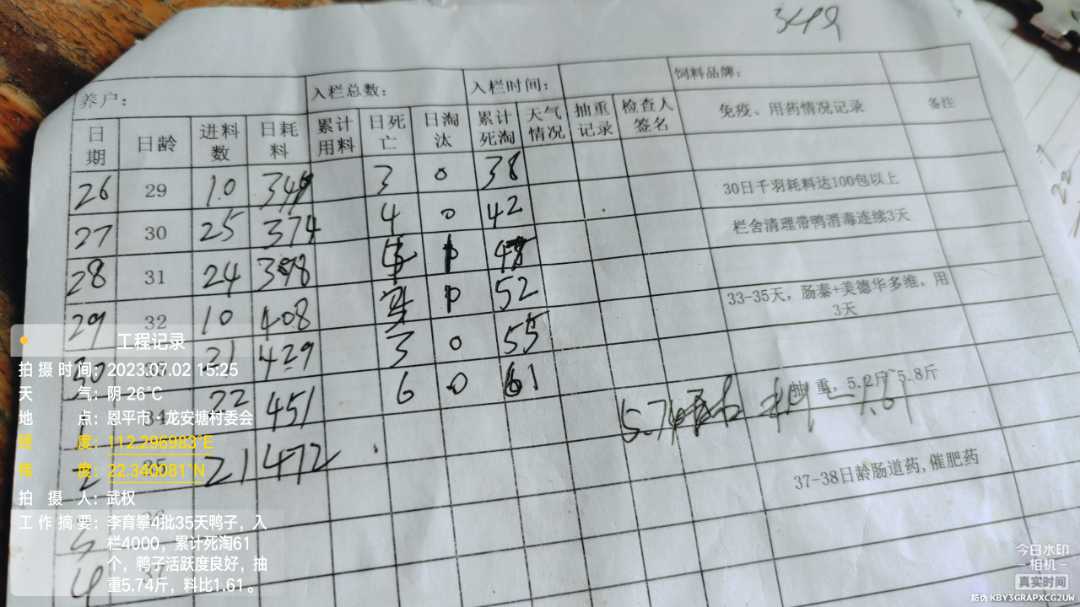 349
养户: 入栏总数: 入栏时间: 饲料品牌:
日期 日龄 进料数 日耗料 累计用料 日死亡 日淘汰 累计死淘 天气情况 抽重记录 检查人签名 免疫、用药情况记录 备注
26 29 10 349 3 0 38
30日千羽耗料达100包以上
27 30 25 374 4 0 42
栏舍清理带鸭消毒连续3天
28 31 24 398 1 48
29 32 10 408 52
33-35天，肠泰+美德华多维，用3天
30 21 429 3 0 55
22 451 6 0 61
重，5.2斤~5.8斤
5.74 料 1.61
2 35 21 472
37-38日龄肠道药，催肥药
4
工程记录
拍摄时间：2023.07.02 15:25
天气：阴 26°C
地点：恩平市·龙安塘村委会
经度：112.296983°E
纬度：22.340081°N
拍摄人：武权
工作摘要：李育攀4批35天鸭子，入
栏4000，累计死淘61
个，鸭子活跃度良好，抽
重5.74斤，料比1.61。
今日水印
相机
真实时间
防伪 KBY3GRAPXCG2UW